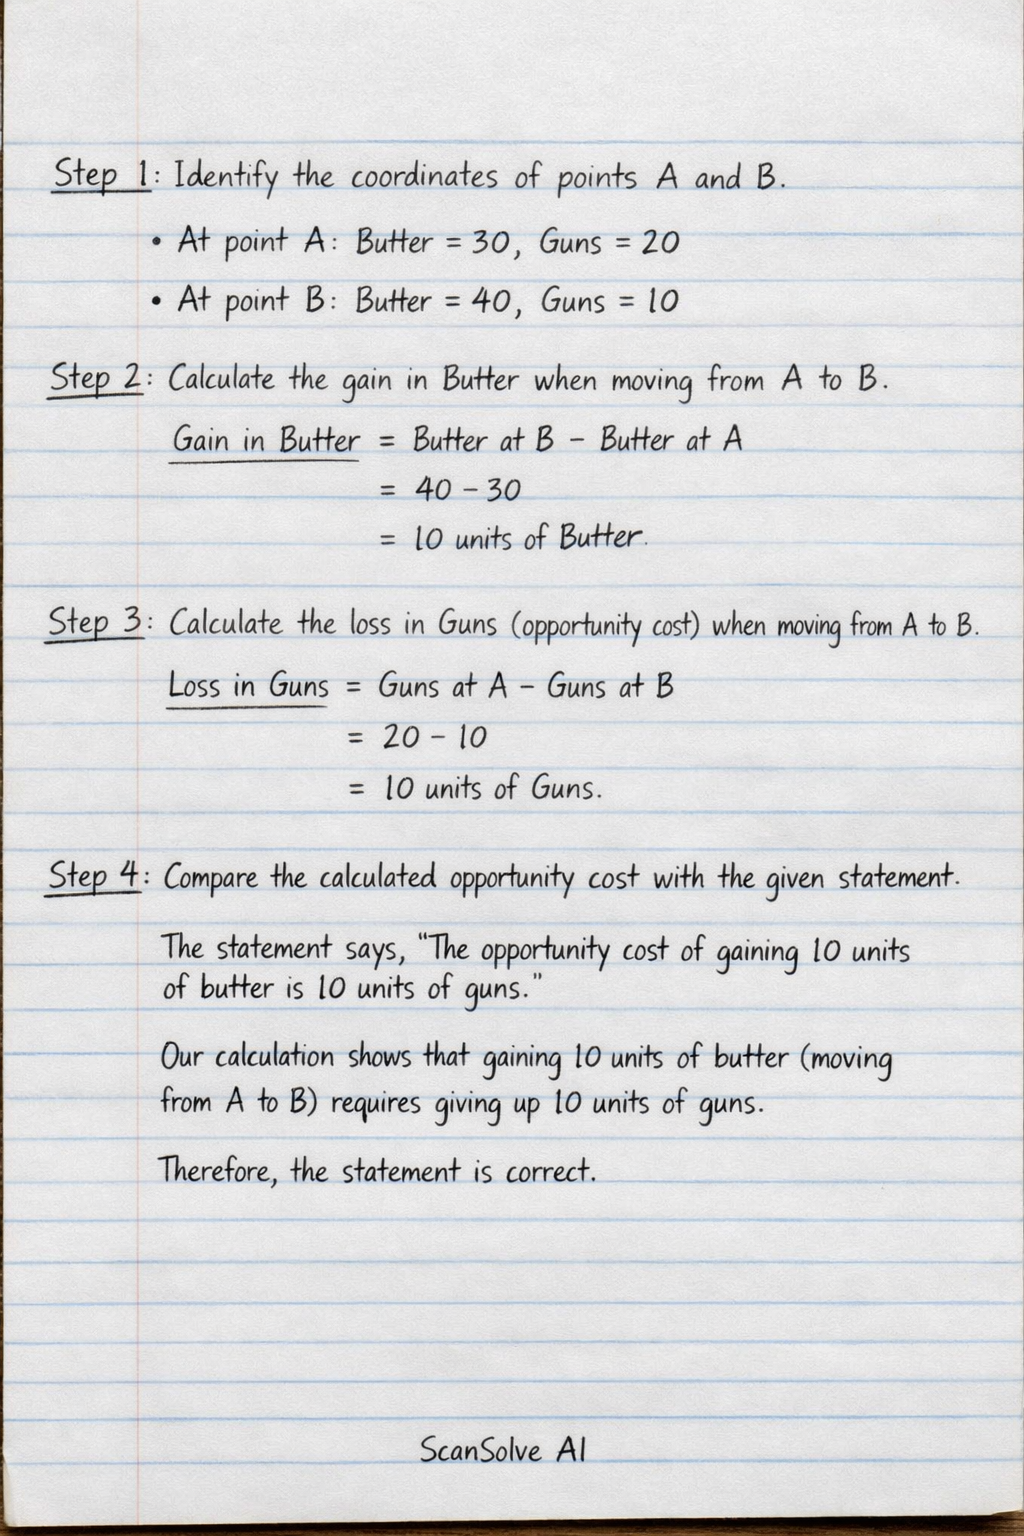 Step 1: Identify the coordinates of points A and B.
• At point A: Butter = 30, Guns = 20
• At point B: Butter = 40, Guns = 10
Step 2: Calculate the gain in Butter when moving from A to B.
Gain in Butter = Butter at B - Butter at A
= 40 - 30
= 10 units of Butter.
Step 3: Calculate the loss in Guns (opportunity cost) when moving from A to B.
Loss in Guns = Guns at A - Guns at B
= 20 - 10
= 10 units of Guns.
Step 4: Compare the calculated opportunity cost with the given statement.
The statement says, "The opportunity cost of gaining 10 units
of butter is 10 units of guns."
Our calculation shows that gaining 10 units of butter (moving
from A to B) requires giving up 10 units of guns.
Therefore, the statement is correct.
ScanSolve AI